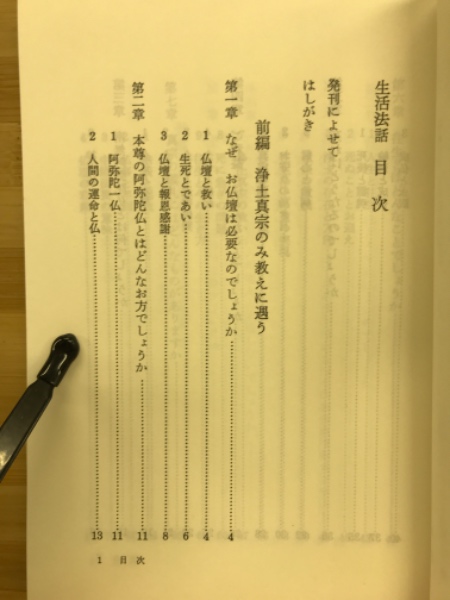 生活法話 目次
発刊によせて
はしがき
前編 浄土真宗のみ教えに遇う
第一章 なぜ お仏壇は必要なのでしょうか……4
1 仏壇と救い……4
2 生死とであい……6
3 仏壇と報恩感謝……8
第二章 本尊の阿弥陀仏とはどんなお方でしょうか……11
1 阿弥陀一仏……11
2 人間の運命と仏……13
1 目次